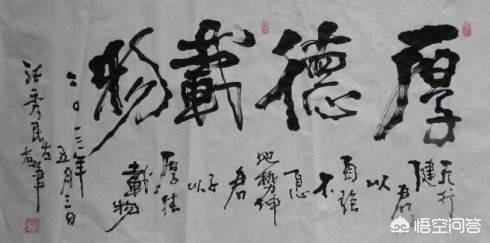 厚德載物
天行
健君子
以
自强
不
息
地势坤
君
子
以
厚德
載物
二〇一三年
五月三日
秀民左右筆
悟空问答